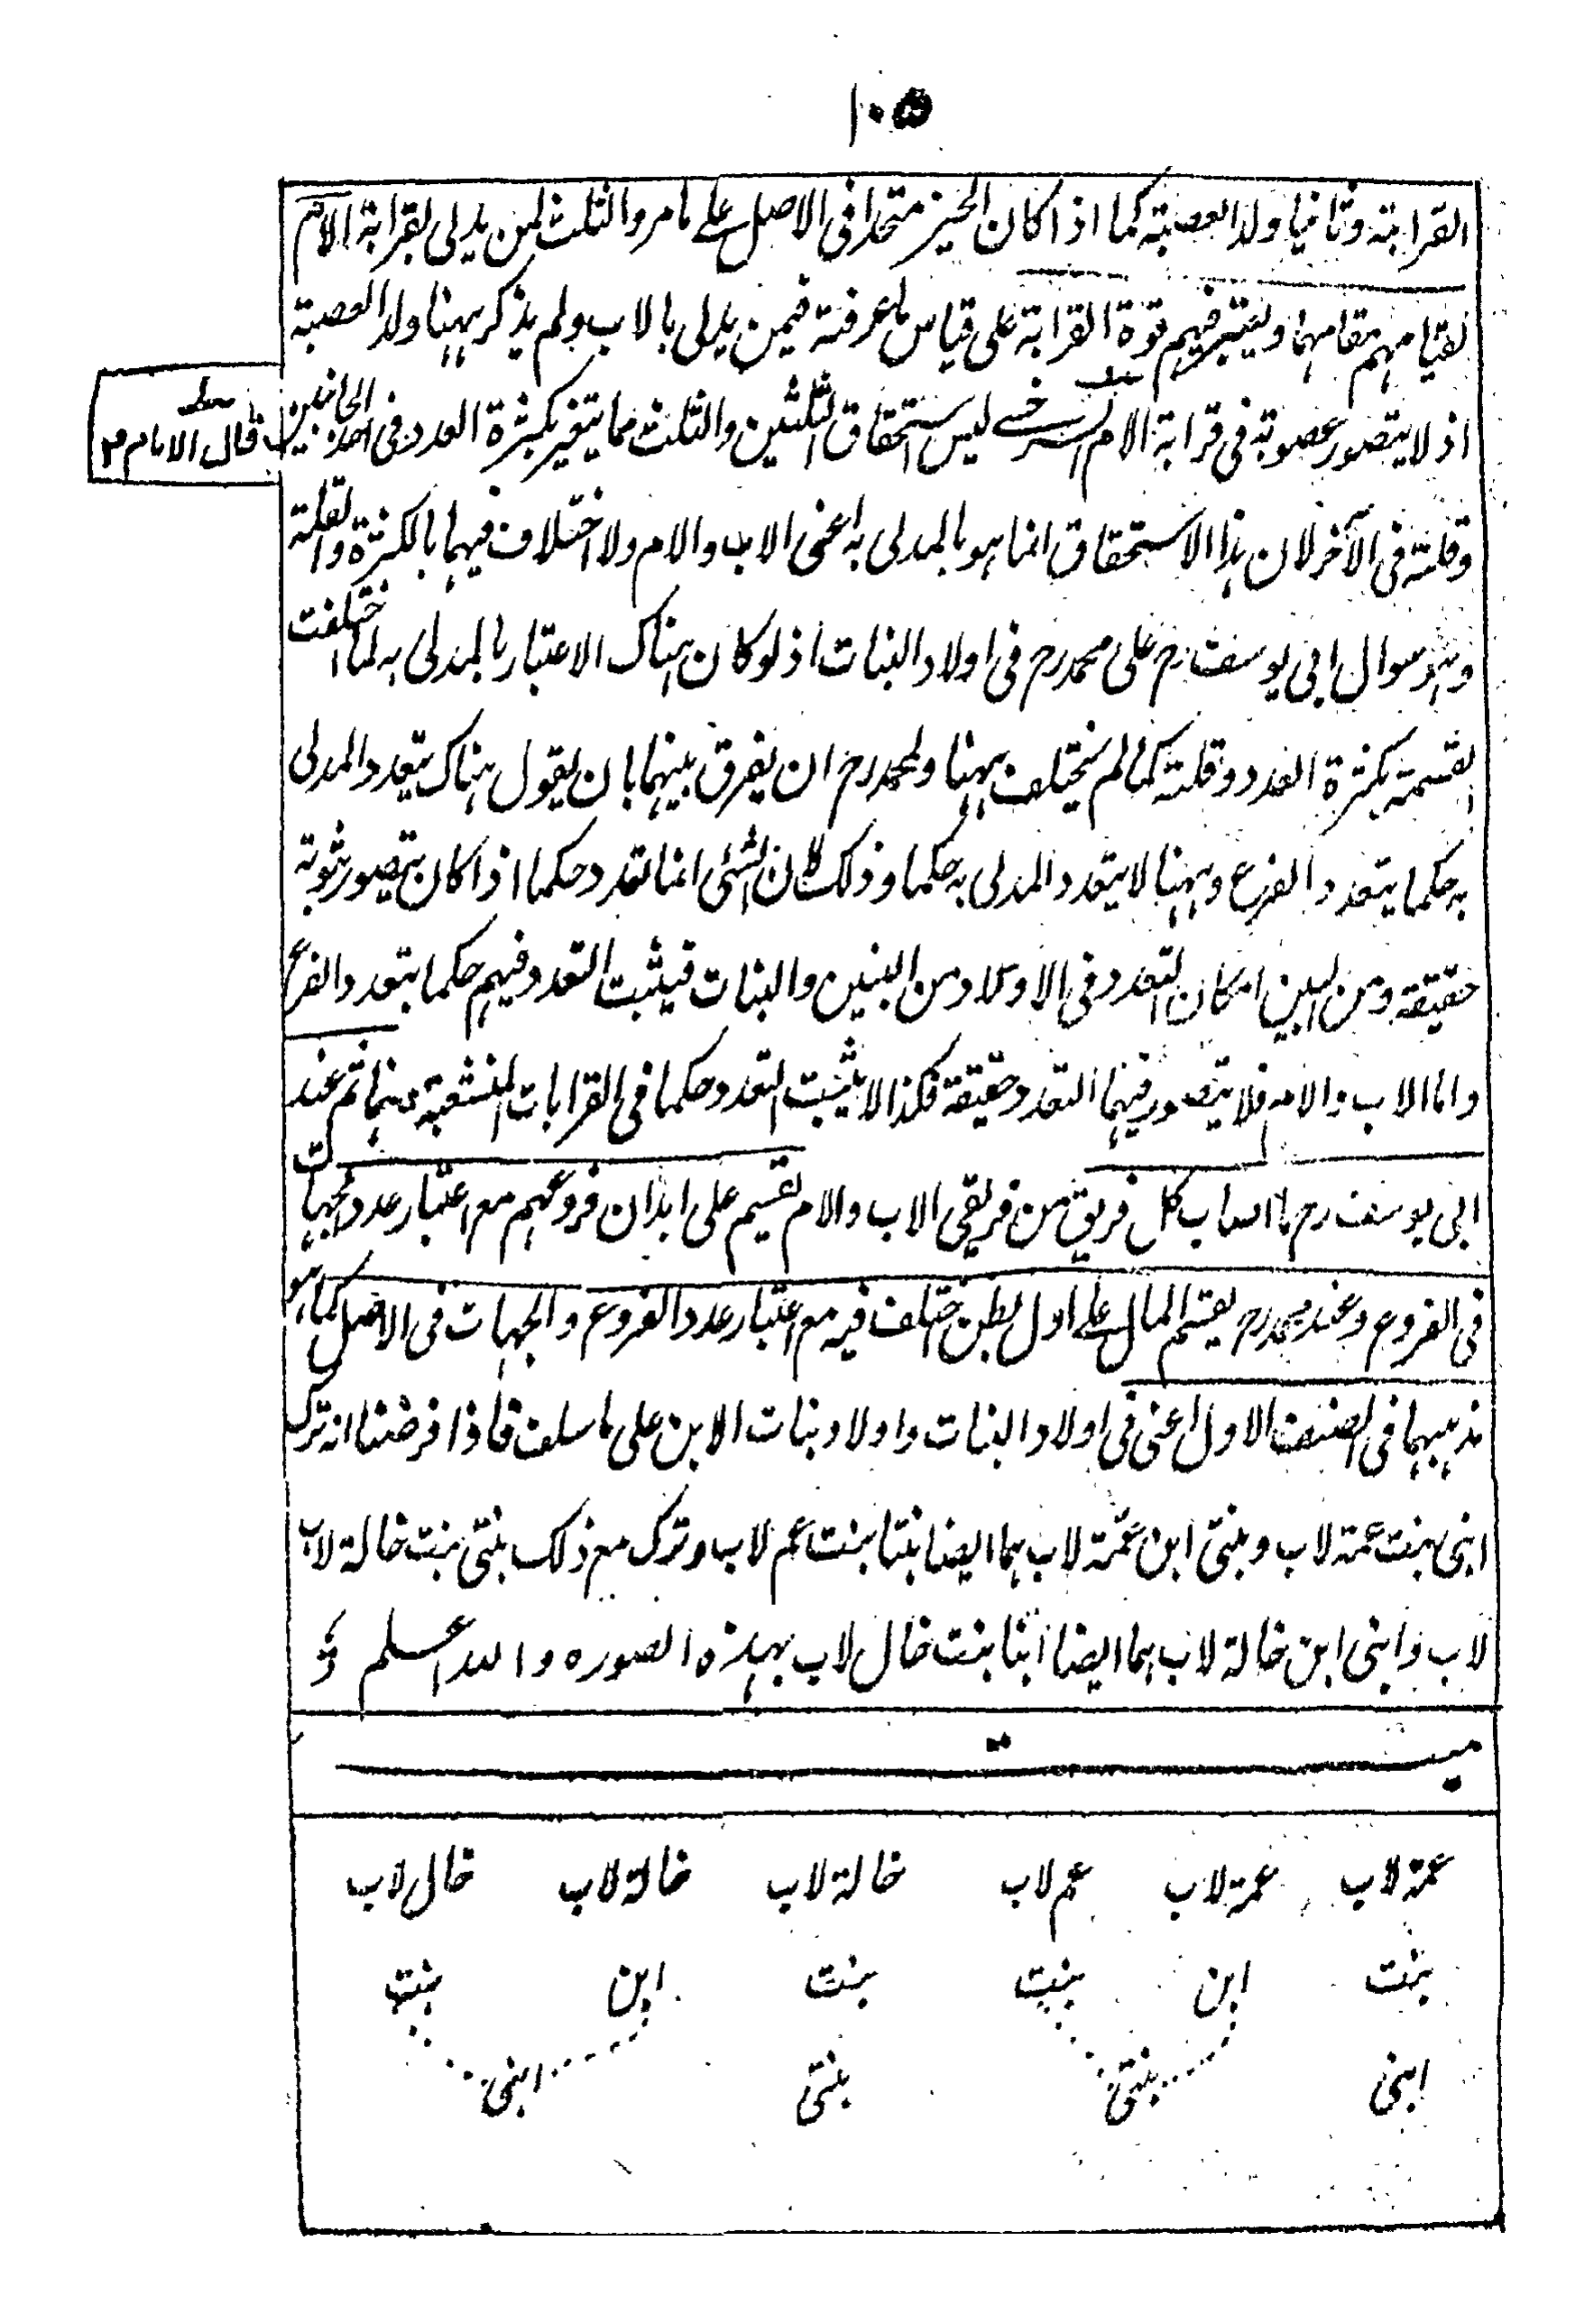 ١٠٥
القرابة وثانيا ولد العصبة كما اذا كان الحيز متحدا فى الاصل على ما مر والثلث لمن يدلى بقرابة الام
لقيامهم مقامهما ويعتبر فيهم قوة القرابة على قياس ما عرفته فيمن يدلى بالاب ولم يذكر ههنا ولد العصبة
اذ لا يتصور عصوبة فى قرابة الام السرخسى ليس استحقاق الثلثين والثلث مما يتغير بكثرة العدد فى احد الجانبين
قال الامام
وقلته فى الآخر لان هذا الاستحقاق انما هو بالمدلى به اعنى الاب والام ولا اختلاف فيهما بالكثرة والقلة
وهو سوال ابى يوسف رح على محمد رح فى اولاد البنات اذ لو كان هناك الاعتبار بالمدلى به لما اختلفت
القسمة بكثرة العدد وقلته كما لم يختلف ههنا ولمحمد رح ان يفرق بينهما بان يقول هناك يتعدد المدلى
به حكما بتعدد الفرع وههنا لا يتعدد المدلى به حكما وذلك لان الشئ انما تعدد حكما اذا كان يتصور ثبوته
حقيقة ومن البين امكان التعدد فى الاولاد من البنين والبنات فيثبت التعدد فيهم حكما بتعدد الفرع
واما الاب والام فلا يتصور فيهما التعدد حقيقة فكذا لا يثبت التعدد حكما فى القرابات المنشعبة عنهما ثم عند
ابى يوسف رح ما اصاب كل فريق من فريقى الاب والام تقسيم على ابدان فروعهم مع اعتبار عدد الجهات
فى الفروع وعند محمد رح يقسم المال على اول بطن اختلف فيه مع اعتبار عدد الفروع والجهات فى الاصل كما هو
مذهبهما فى الصنف الاول اعنى فى اولاد البنات واولاد بنات الابن على ما سلف فاذا فرضنا انه ترك
ابنى بنت عمة لاب وبنتى ابن عمة لاب هما ايضا بنتا بنت عم لاب وترك مع ذلك بنتى بنت خالة لاب
لاب وابنى ابن خالة لاب هما ايضا ابنا بنت خال لاب بهذه الصوره والله اعلم
ميت
عمة لاب عمة لاب عم لاب خالة لاب خالة لاب خال لاب
بنت ابن بنت بنت ابن بنت
ابنى بنتى بنتى ابنى